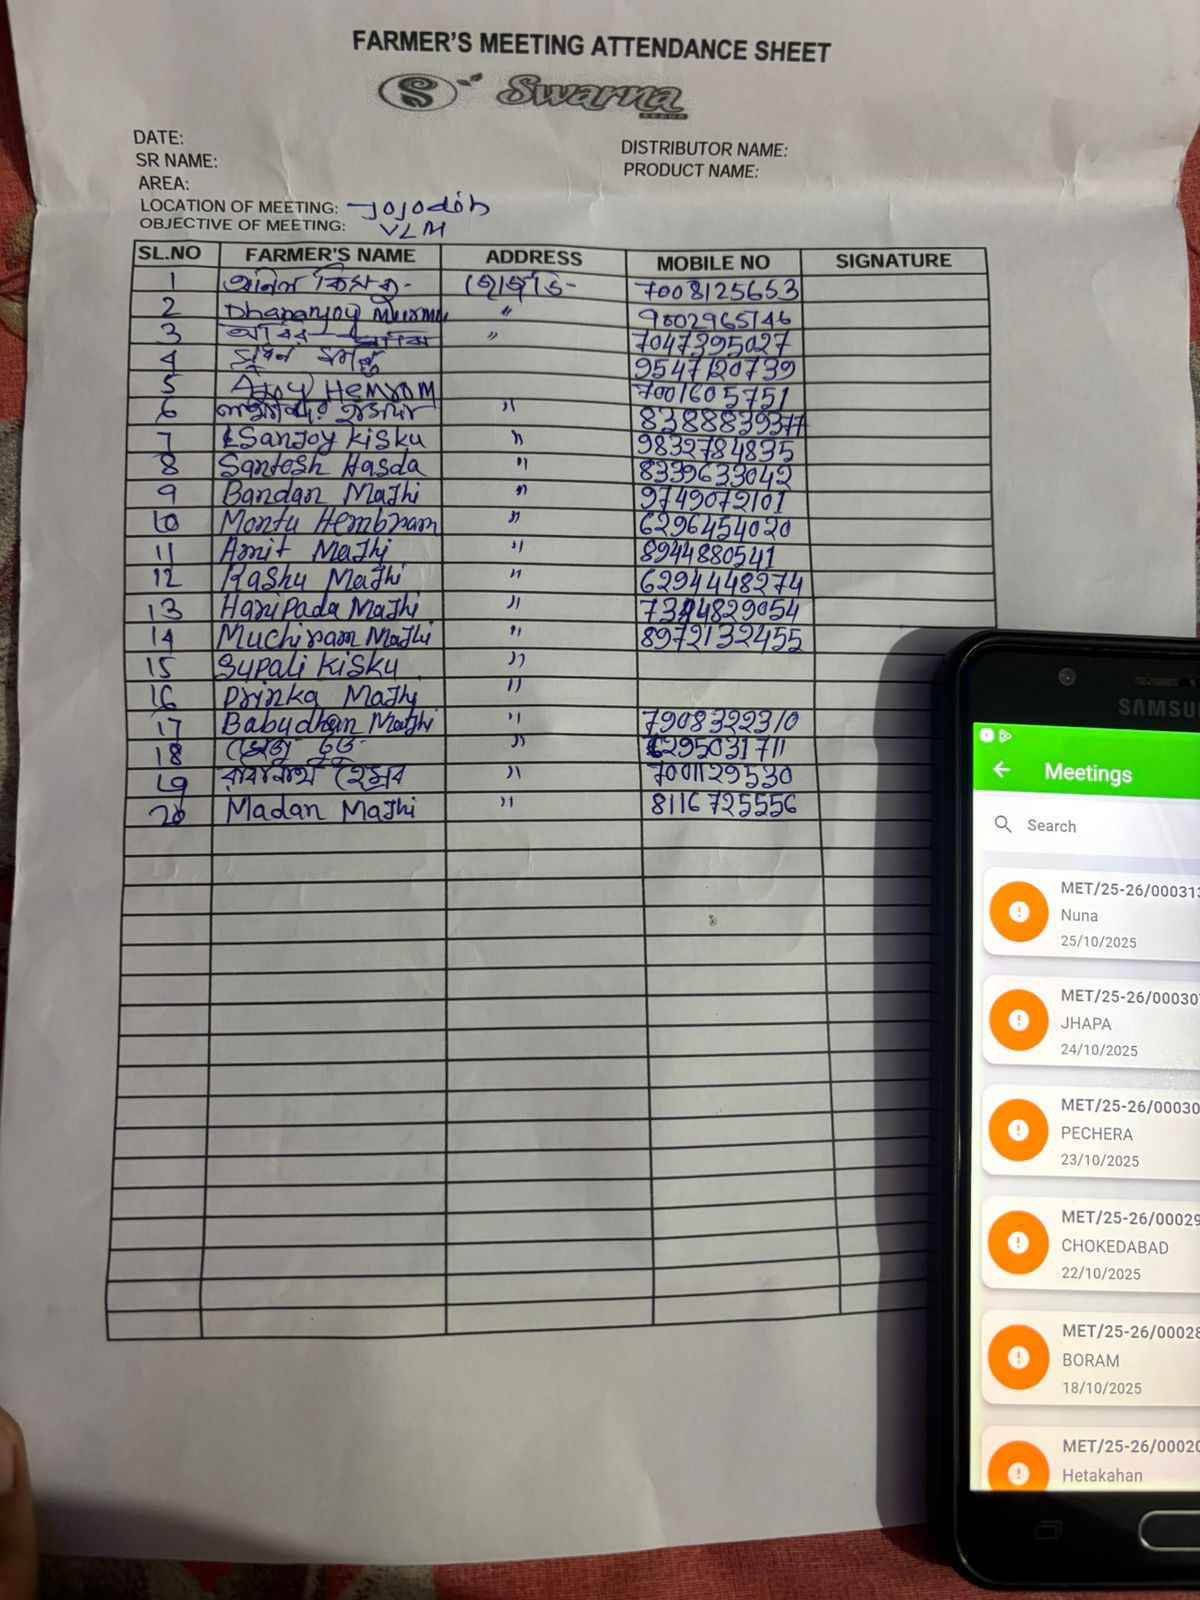 FARMER'S MEETING ATTENDANCE SHEET
S Swarna
DATE:
SR NAME:
AREA:
DISTRIBUTOR NAME:
PRODUCT NAME:
LOCATION OF MEETING: Jojodih
OBJECTIVE OF MEETING: VLM
SL.NO FARMER'S NAME ADDRESS MOBILE NO SIGNATURE
1 7008125653
2 Dhananjoy Murmu " 9002965746
3 " 7047395027
4 9547120739
5 Ajoy Hemrom 7001605751
6 " 8388839377
7 Sanjoy Kisku " 9832784835
8 Santosh Hasda " 8339633042
9 Bandan Majhi " 9749072101
10 Montu Hembram " 6296454020
11 Amit Majhi " 8944880541
12 Rashu Majhi " 6294448274
13 Haripada Majhi "
14 Muchiram Majhi " 8972132455
15 Supali Kisku "
16 Prinka Majhi "
17 Babudhan Majhi " 7908322310
18 " 6295031711
19 " 7001129530
20 Madan Majhi " 8116725556
SAMSU
Meetings
Search
MET/25-26/000313
Nuna
25/10/2025
MET/25-26/000307
JHAPA
24/10/2025
MET/25-26/00030
PECHERA
23/10/2025
MET/25-26/00029
CHOKEDABAD
22/10/2025
MET/25-26/00028
BORAM
18/10/2025
MET/25-26/00020
Hetakahan